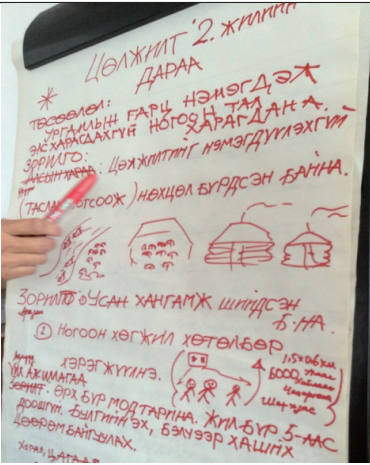 ЦӨЛЖИЛТ 2. ЖИЛИЙН
ДАРАА
ТӨСӨӨЛӨЛ:
УРГАМЛЫН ГАРЦ НЭМЭГДЭЖ
ЭЛС ХАРАГДАХГҮЙ НОГООН ТАЛ
ХАРАГДАНА.
ЗОРИЛГО:
АЛСЫН ХАРАА: ЦӨЛЖИЛТИЙГ НЭМЭГДҮҮЛЭХГҮЙ
(ТАСЛАН ЗОГСООЖ) НӨХЦӨЛ БҮРДСЭН БАЙНА.
ЗОРИЛТ УСАН ХАНГАМЖ ШИЙДСЭН
Б-НА.
① НОГООН ХӨГЖИЛ ХӨТӨЛБӨР
ХЭРЭГЖҮҮЛНЭ.
1,5×0,6 км
5000
Чацаргана
ҮЙЛ АЖИЛЛАГАА
ЗОРИЛТ: ӨРХ БҮР МОД ТАРИНА. ЖИЛ БҮР 5-ААС
ДООШГҮЙ. БУЛГИЙН ЭХ, БЭЛЧЭЭР ХАШИХ
ЦӨӨРӨМ БАЙГУУЛАХ.